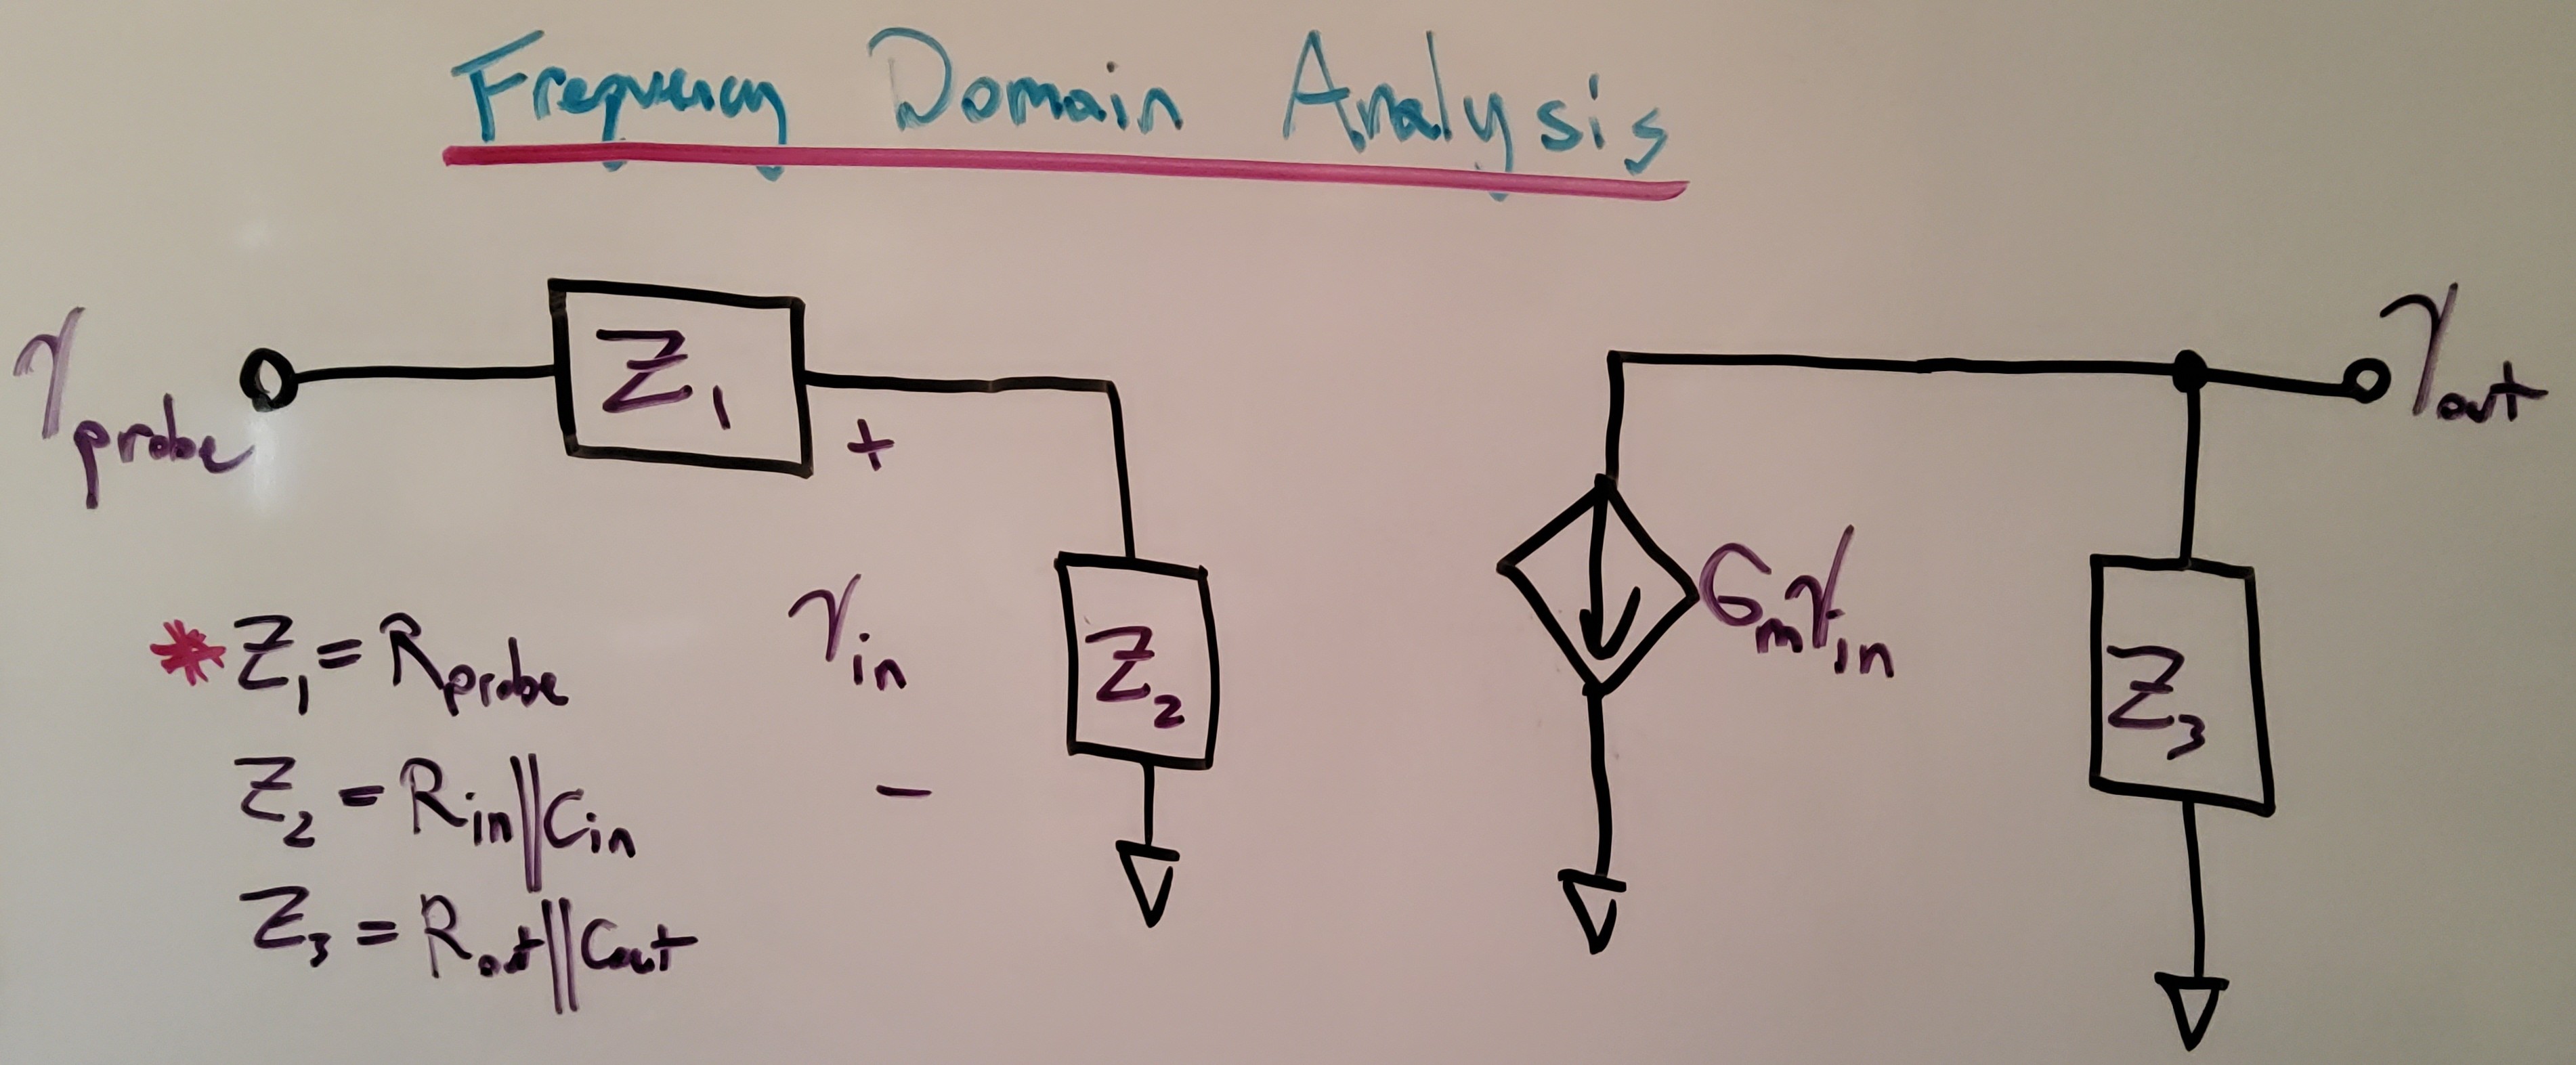 Frequency Domain Analysis
Vprobe
Z1
+
Vin
-
Z2
GmVin
Vout
Z3
* Z1 = Rprobe
Z2 = Rin||Cin
Z3 = Rout||Cout